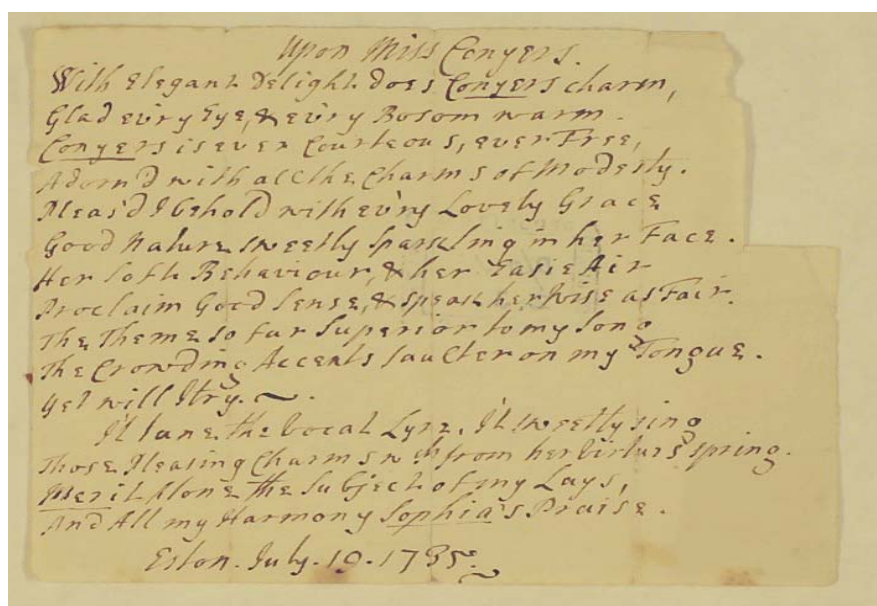 Upon Miss Conyers.
With Elegant Delight does Conyers charm,
Glad ev'ry Eye, & ev'ry Bosom warm.
Conyers is ever Courteous, ever Free,
Adorn'd with all the Charms of Modesty.
Pleas'd I behold with ev'ry Lovely Grace
Good Nature sweetly sparkling in her Face.
Her soft Behaviour, & her Easie Air
Proclaim Good Sense, & speak her Wise as Fair.
The Theme so far Superior to my Song
The Crowding Accents faulter on my Tongue.
Yet will I try. ~ .
I'l tune the Vocal Lyre, I'l sweetly sing
Those Pleasing Charms wch from her Virtues spring.
Merit Alone the Subject of my Lays,
And All my Harmony Sophia's Praise.
Eston. July. 19. 1735.